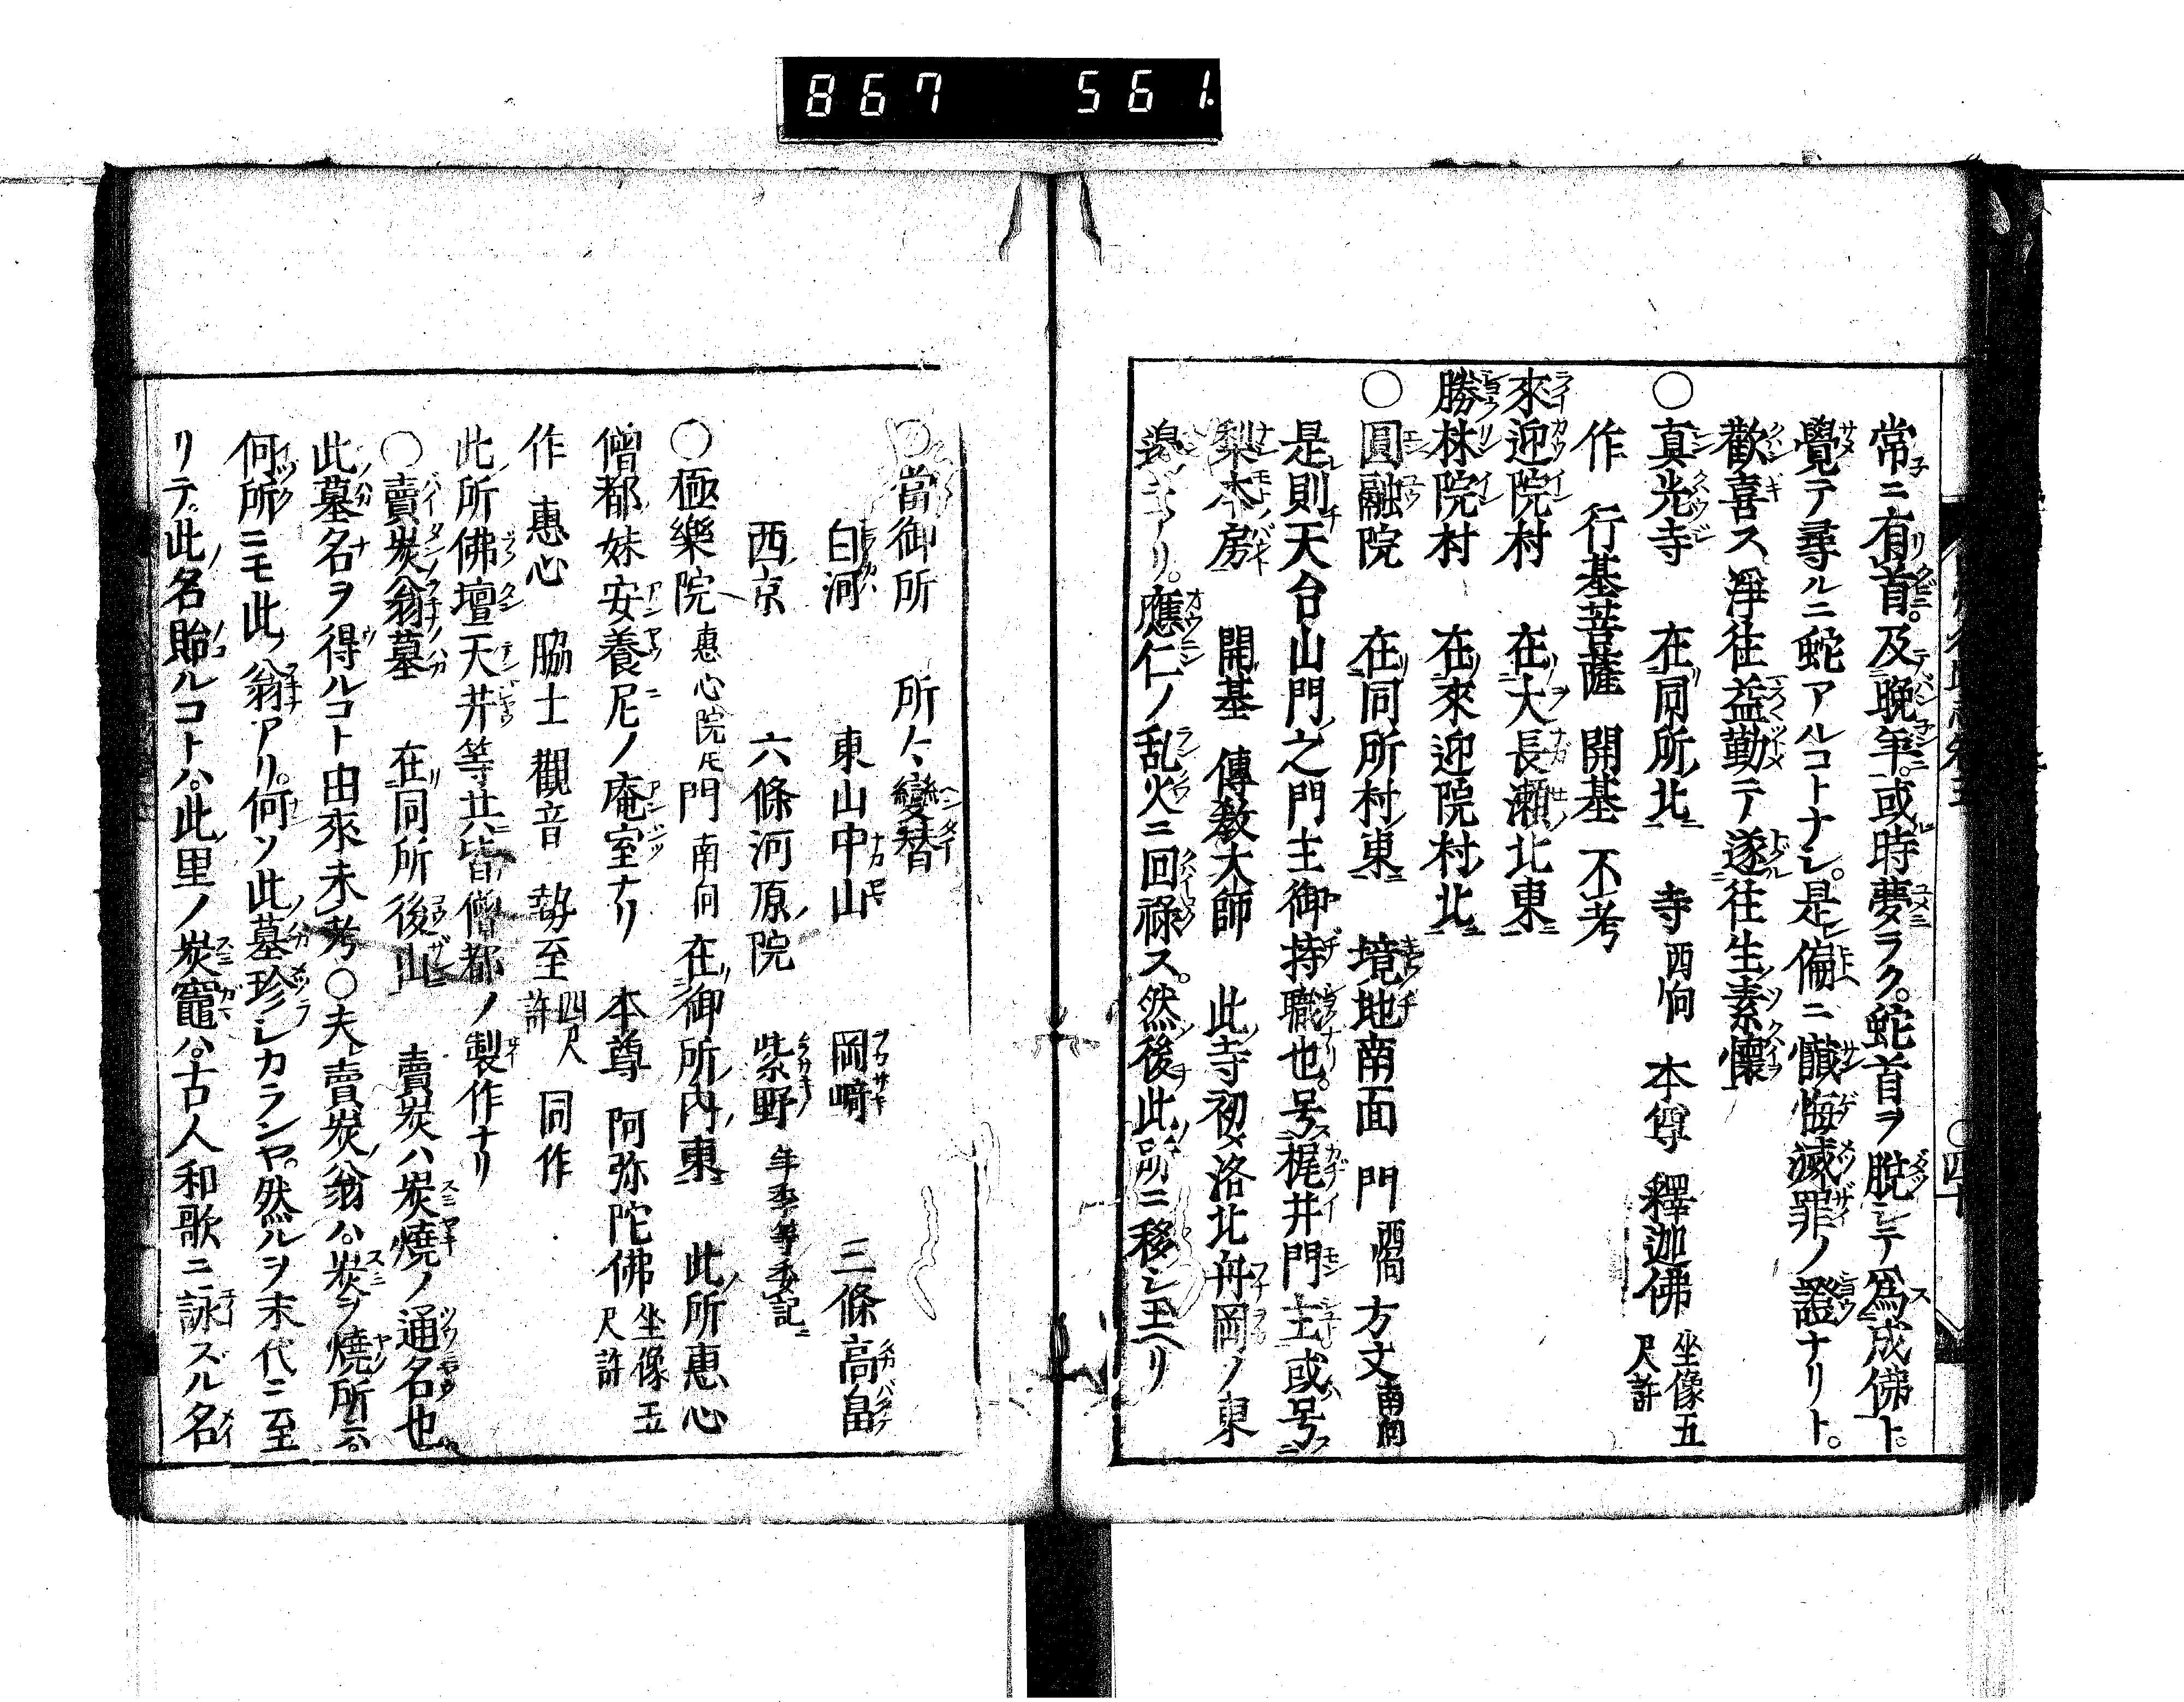 867 561.
常ニ有首。及晩年。或時夢ラク。蛇首ヲ脱シテ爲成佛ト。
覺テ尋ルニ蛇アルコトナシ。是偏ニ懺悔滅罪ノ證ナリト。
歡喜ス淨往益勤テ遂往生素懷
○真光寺 在同所北 寺西向 本尊 釋迦佛 坐像五尺許
作 行基菩薩 開基 不考
來迎院村 在大長瀬北東
勝林院村 在來迎院村北
○圓融院 在同所村東 境地南面 門西向 方丈南向
是則天台山門之門主御持職也。号梶井門主或号
梨本房 開基 傳教大師 此寺初メ洛北舟岡ノ東
邉ニアリ。應仁ノ乱火ニ回禄ス。然後此所ニ移シ玉ヘリ
○當御所 所々變替
白河 東山中山 岡﨑 三條高畠
西京 六條河原院 紫野 年季等委記
○極樂院 惠心院トモ 門南向 在御所内東 此所惠心
僧都妹安養尼ノ庵室ナリ 本尊 阿弥陀佛 坐像五尺許
作 惠心 脇士 觀音 勢至 四尺許 同作
此所佛壇天井等共皆僧都ノ製作ナリ
○賣炭翁墓 在同所後山 賣炭ハ炭燒ノ通名也
此墓名ヲ得ルコト由來未考○夫賣炭翁ハ。炭ヲ燒所ニハ。
何所ニモ此翁アリ。何ソ此墓珍シカランヤ。然ルヲ末代ニ至
リテ。此名貽ルコトハ。此里ノ炭竈ハ。古人和歌ニ詠スル名